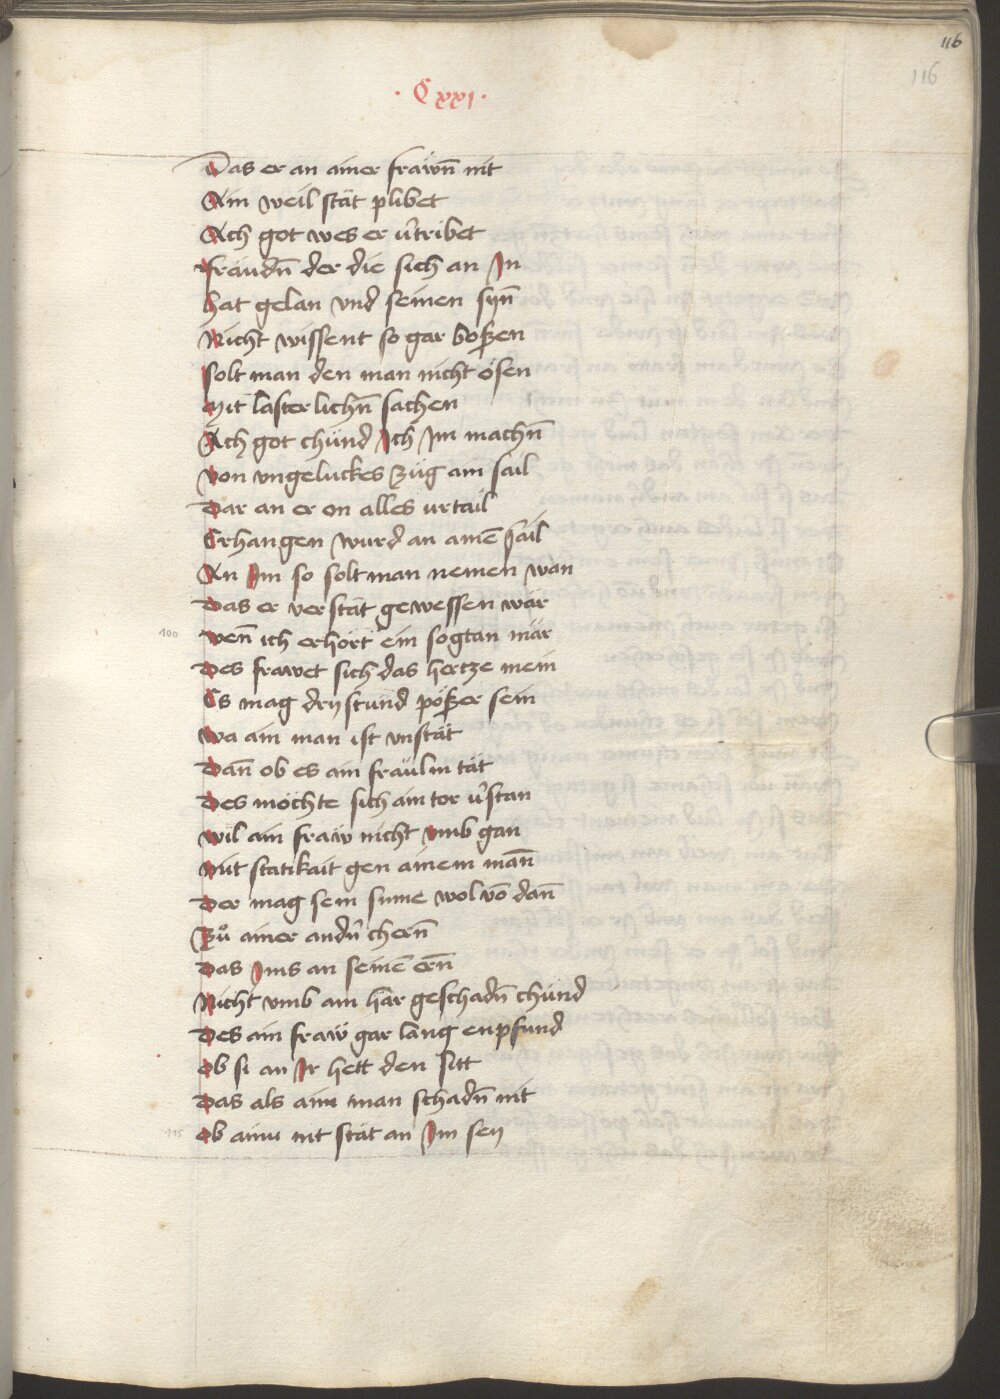 116
116
· Cxxi ·
Das er an ainer frawñ nit
Ain weil stät plibet
Ach got wes er v̄tribet
fräudñ der die sich an In
hat gelan vnd seinen syñ
Nicht wissent so gar boßen
solt man den man nicht ösen
Mit lasterlichñ sachen
Ach got chünd Ich Im machñ
von vngeluckes züg am sail
Dar an er on alles vrtail
Erhangen wurd an ainē sail
An Im so solt man nemen wan
Das er verstät gewessen wär
100
wenn ich erhört ein sogtan mär
Des frawet sich das hertze mein
Es mag drystund pößer sein
wa ain man ist vnstät
Dañ ob es ain fräulin tät
Des möchte sich ain tor v̄stan
wil ain fraw nicht vmb gan
Mit statikait gen ainem mañ
Der mag sein sinne wol vō dañ
Zů ainer andr̄ cherñ
Das Ims an seinē erñ
Nicht vmb ain här geschadñ chünd
Des ain fraw gar lang enpfund
Ob si an Ir hett den sitt
Das als aim man schadñ nit
115
Ob ainu nit stät an Im sey